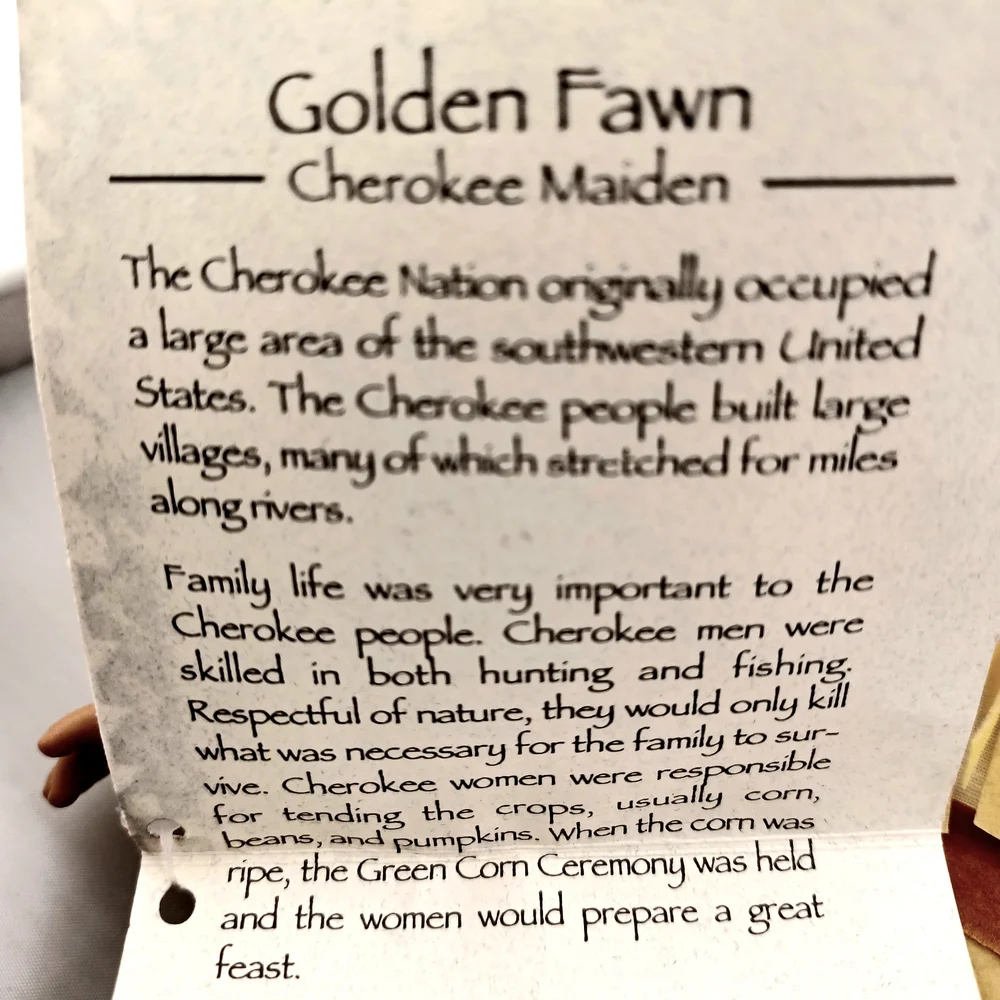 Golden Fawn
Cherokee Maiden
The Cherokee Nation originally occupied
a large area of the southwestern United
States. The Cherokee people built large
villages, many of which stretched for miles
along rivers.
Family life was very important to the
Cherokee people. Cherokee men were
skilled in both hunting and fishing.
Respectful of nature, they would only kill
what was necessary for the family to sur-
vive. Cherokee women were responsible
for tending the crops, usually corn,
beans, and pumpkins. When the corn was
ripe, the Green Corn Ceremony was held
and the women would prepare a great
feast.